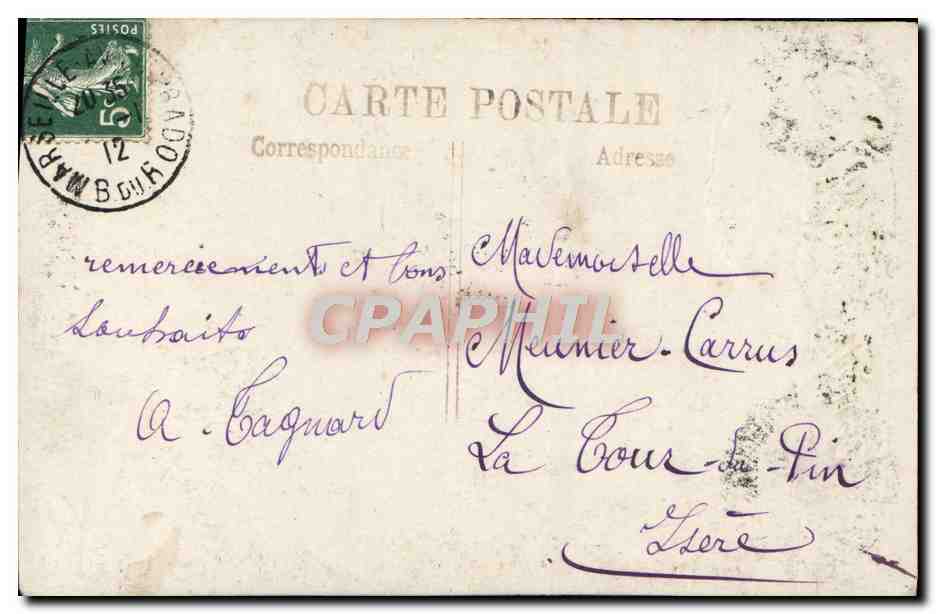 POSTES
5
MARSEILLE
20 35
12
B. DU R
CARTE POSTALE
Correspondance
Adresse
remerciements et bons
souhaits
A. Tagnard
Mademoiselle
Meunier-Carrus
La Tour-du-Pin
Isère
CPAPHIL